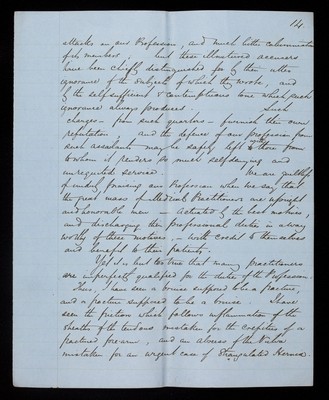 14.
attacks on our Profession, and much bitter calumniation
of its members, but these Monstrued accusers
have been chiefly distinguished for their utter
ignorance of the subjects of which they wrote, and
by the self-sufficient & contemptuous tone which such
ignorance always produces. Such
charges – from such quarters – furnish their own
refutation, and the defence of our profession from
such assailants may be safely left to those from
to whom it renders so much self denying and
unrequited service. We are guiltless
of unduly praising our Profession when we say that
the great mass of Medical Practitioners are upright
and honorable men – actuated by the best motives,
and discharging their professional duties in a way
worthy of these motives, – with credit to themselves
and benefit to their patients.
Yet it is but too true that many practitioners
are imperfectly qualified for the duties of the Profession.
Thus, I have seen a bruise supposed to be a fracture,
and a fracture supposed to be a bruise. I have
seen the friction which follows inflammation of the
sheaths of the tendons mistaken for the crepitus of a
fractured forearm, and an abscess of the Vulva
mistaken for an urgent case of Strangulated Hernia.